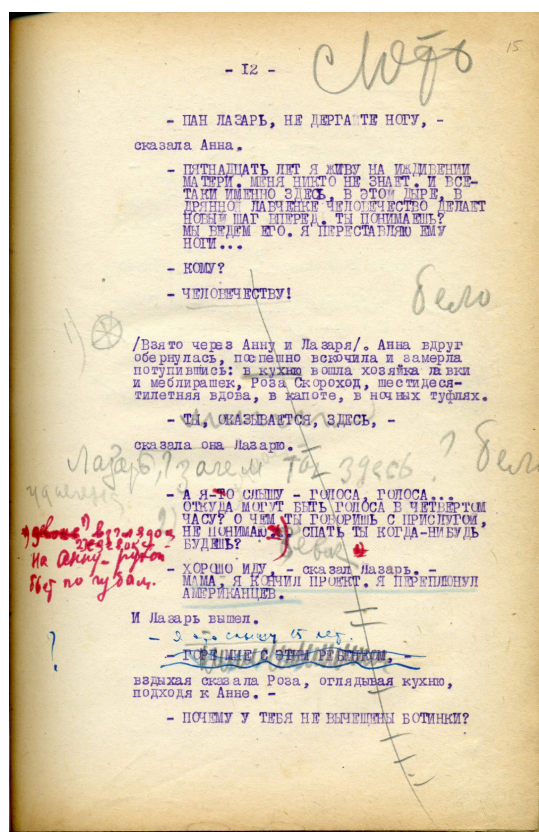 15
- I2 -
- ПАН ЛАЗАРЬ, НЕ ДЕРГАЙТЕ НОГУ, -
сказала Анна.
- ПЯТНАДЦАТЬ ЛЕТ Я ЖИВУ НА ИЖДИВЕНИИ
МАТЕРИ. МЕНЯ НИКТО НЕ ЗНАЕТ. И ВСЕ-
ТАКИ ИМЕННО ЗДЕСЬ, В ЭТОЙ ДЫРЕ, В
ДРЯННОЙ ЛАВЧЕНКЕ ЧЕЛОВЕЧЕСТВО ДЕЛАЕТ
НОВЫЙ ШАГ ВПЕРЕД. ТЫ ПОНИМАЕШЬ?
МЫ ВЕДЕМ ЕГО. Я ПЕРЕСТАВЛЯЮ ЕМУ
НОГИ...
- КОМУ?
- ЧЕЛОВЕЧЕСТВУ!
бело
1)
/Взято через Анну и Лазаря/. Анна вдруг
обернулась, поспешно вскочила и замерла
потупившись: в кухню вошла хозяйка лавки
и меблирашек, Роза Скороход, шестидеся-
тилетняя вдова, в капоте, в ночных туфлях.
- ТЫ, ОКАЗЫВАЕТСЯ, ЗДЕСЬ, -
сказала она Лазарю.
Лазарь, зачем ты здесь ?
- А Я-ТО СЛЫШУ - ГОЛОСА, ГОЛОСА...
ОТКУДА МОГУТ БЫТЬ ГОЛОСА В ЧЕТВЕРТОМ
ЧАСУ? О ЧЕМ ТЫ ГОВОРИШЬ С ПРИСЛУГОЙ,
НЕ ПОНИМАЮ СПАТЬ ТЫ КОГДА-НИБУДЬ
БУДЕШЬ?
на Анну - рукой
бьет по губам.
- ХОРОШО ИДУ, - сказал Лазарь. -
МАМА, Я КОНЧИЛ ПРОЕКТ. Я ПЕРЕПЛЮНУЛ
АМЕРИКАНЦЕВ.
И Лазарь вышел.
- Я это слышу 15 лет.
?
- ГОРЕ МНЕ С ЭТИМ РЕБЕНКОМ, -
вздыхая сказала Роза, оглядывая кухню,
подходя к Анне. -
- ПОЧЕМУ У ТЕБЯ НЕ ВЫЧЕЩЕНЫ БОТИНКИ?